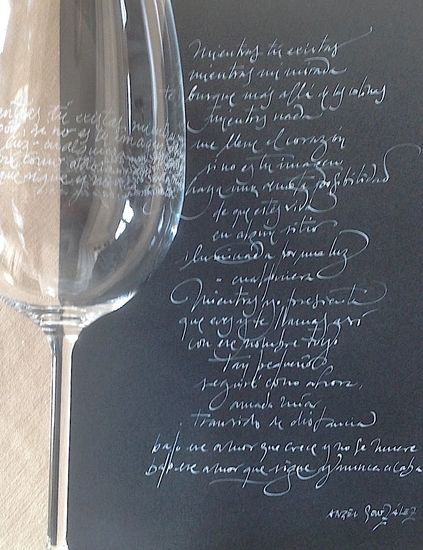 mientras tú existas
mientras mi mirada
te busque más allá de las colinas
mientras nada
me llene el corazón
si no es tu imagen
haya una remota posibilidad
de que estés viva
en algún sitio
iluminada por una luz
- cualquiera
Mientras yo presienta
que eres y te llamas así
con ese nombre tuyo
tan pequeño
seguiré como ahora,
amada mía,
transido de distancia
bajo ese amor que crece y no se muere
bajo ese amor que sigue y nunca acaba
ANGEL GONZÁLEZ
tú existas, mientras
si no es tu imagen
luz
como
que sigue y nunca